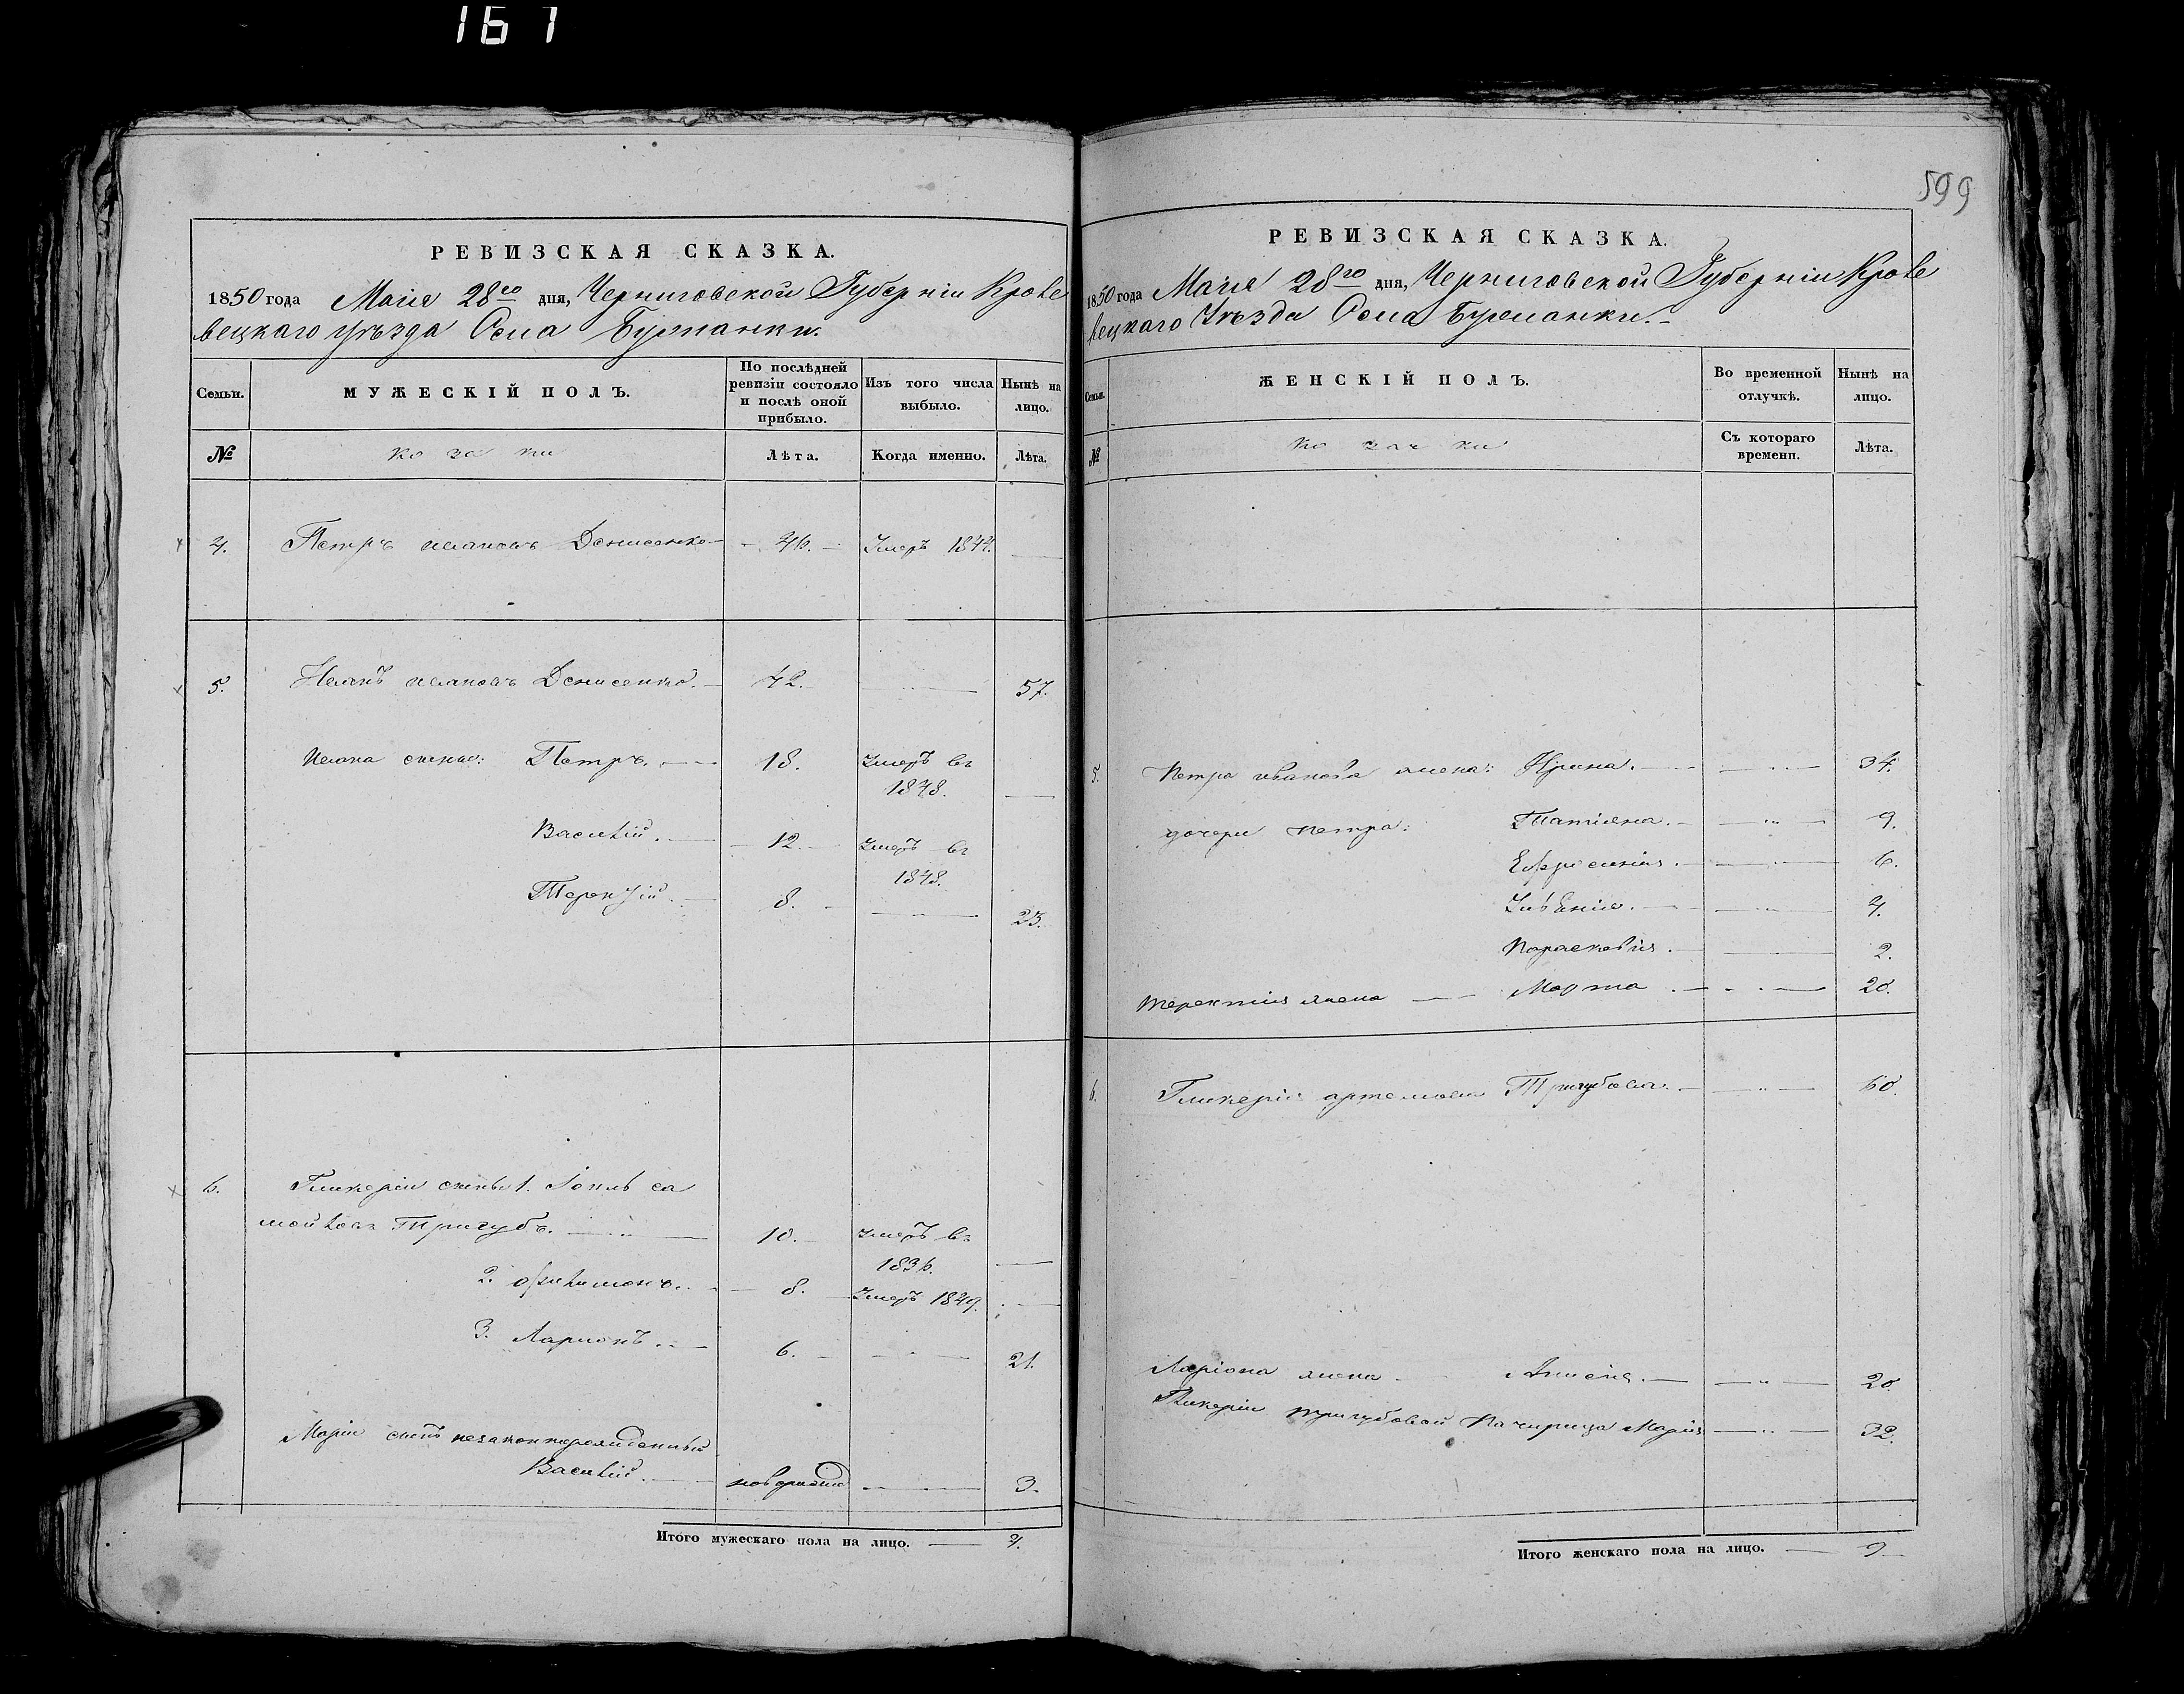 161
599
РЕВИЗСКАЯ СКАЗКА.
1850 года Маія 28го дня, Черниговской Губерніи Кроле
вецкаго уѣзда Села
По послѣдней ревизіи состояло и послѣ оной прибыло.
Изъ того числа выбыло.
Нынѣ на лицо.
Семьи.
МУЖЕСКІЙ ПОЛЪ.
№
козаки
Лѣта.
Когда именно.
Лѣта.
4. Петръ Ивановъ Денисенко 46. Умеръ 1844.
5. Иванъ Ивановъ Денисенко. 42. 57.
Ивана сыны: Петръ. 18. Умеръ въ
1848.
Василій. 12. Умеръ въ
1848.
Терентій. 8. 23.
6. Гликеріи сыны 1. са
мойловъ Тригубъ. 10. Умеръ въ
1836.
2. Филимонъ. 8. Умеръ 1849.
3. Ларионъ. 6. 21.
Маріи сынъ незаконнорожденный
Василій. новорожд 3.
Итого мужескаго пола на лицо. 4.
РЕВИЗСКАЯ СКАЗКА.
1850 года Маія 28го дня, Черниговской Губерніи Кроле
вецкаго Уѣзда Села
Семьи.
ЖЕНСКІЙ ПОЛЪ.
Во временной отлучкѣ.
Нынѣ на лицо.
№
козачки
Съ котораго времени.
Лѣта.
5. Петра Иванова жена: Ирина. 34.
дочери Петра: Татіяна. 9.
Ефросинія. 6.
4.
Параскевія. 2.
Терентія жена Марта 20.
6. Гликерія Артемова Тригубова. 60.
Ларіона жена 20.
Гликеріи Тригубовой Марія 32.
Итого женскаго пола на лицо. 9